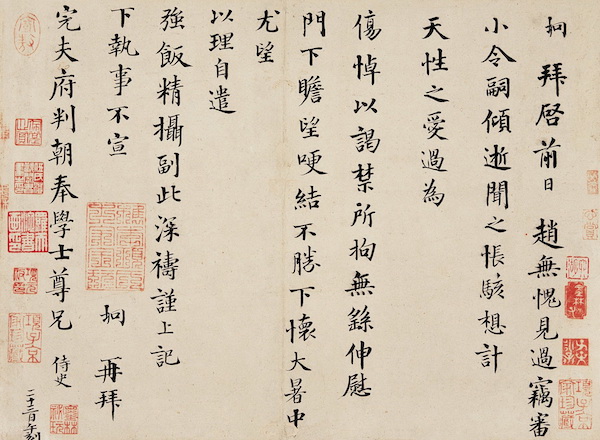 坰 拜啓前日 趙無愧見過竊審
小令嗣傾逝聞之悵駭想計
天性之愛過為
傷悼以謁禁所拘無繇伸慰
門下瞻望哽結不勝下懷大暑中
尤望
以理自遣
強飯精攝副此深禱謹上記
下執事不宣 坰 再拜
完夫府判朝奉學士尊兄 侍史
二十三日午刻